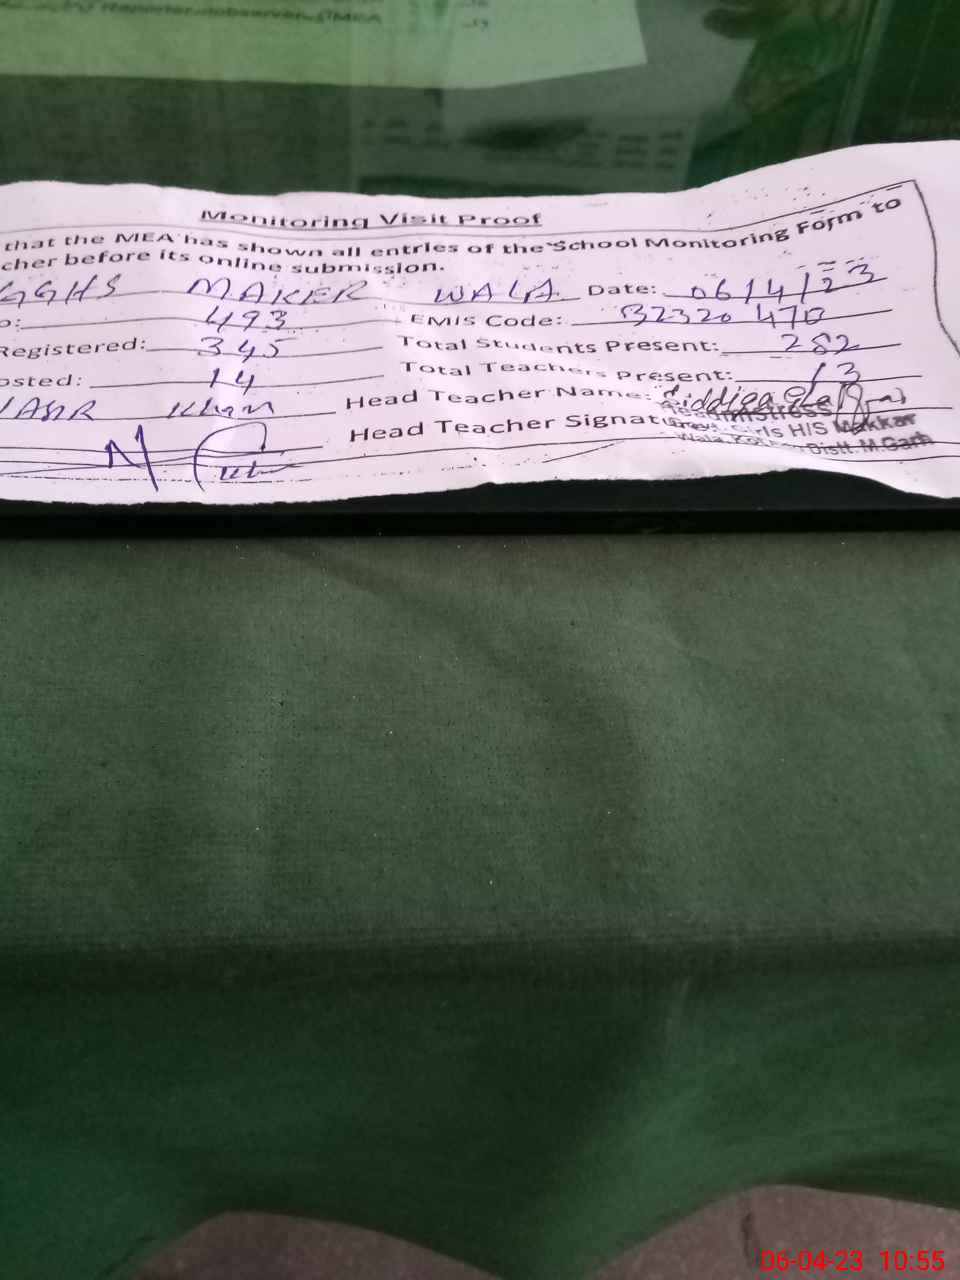 Reporter Observer (MEA
Monitoring Visit Proof
that the MEA has shown all entries of the School Monitoring Form to
cher before its online submission.
GGHS MAKER WALA Date: 06/4/23
o: 493 EMIS Code: 32320470
Registered: 345 Total Students Present: 282
osted: 14 Total Teachers Present: 13
ASIR Khan Head Teacher Name: Siddiqa
Headmistress
Head Teacher Signat Govt. Girls H/S Makkar
Wala Kot Distt. M.Garh
06-04-23 10:55